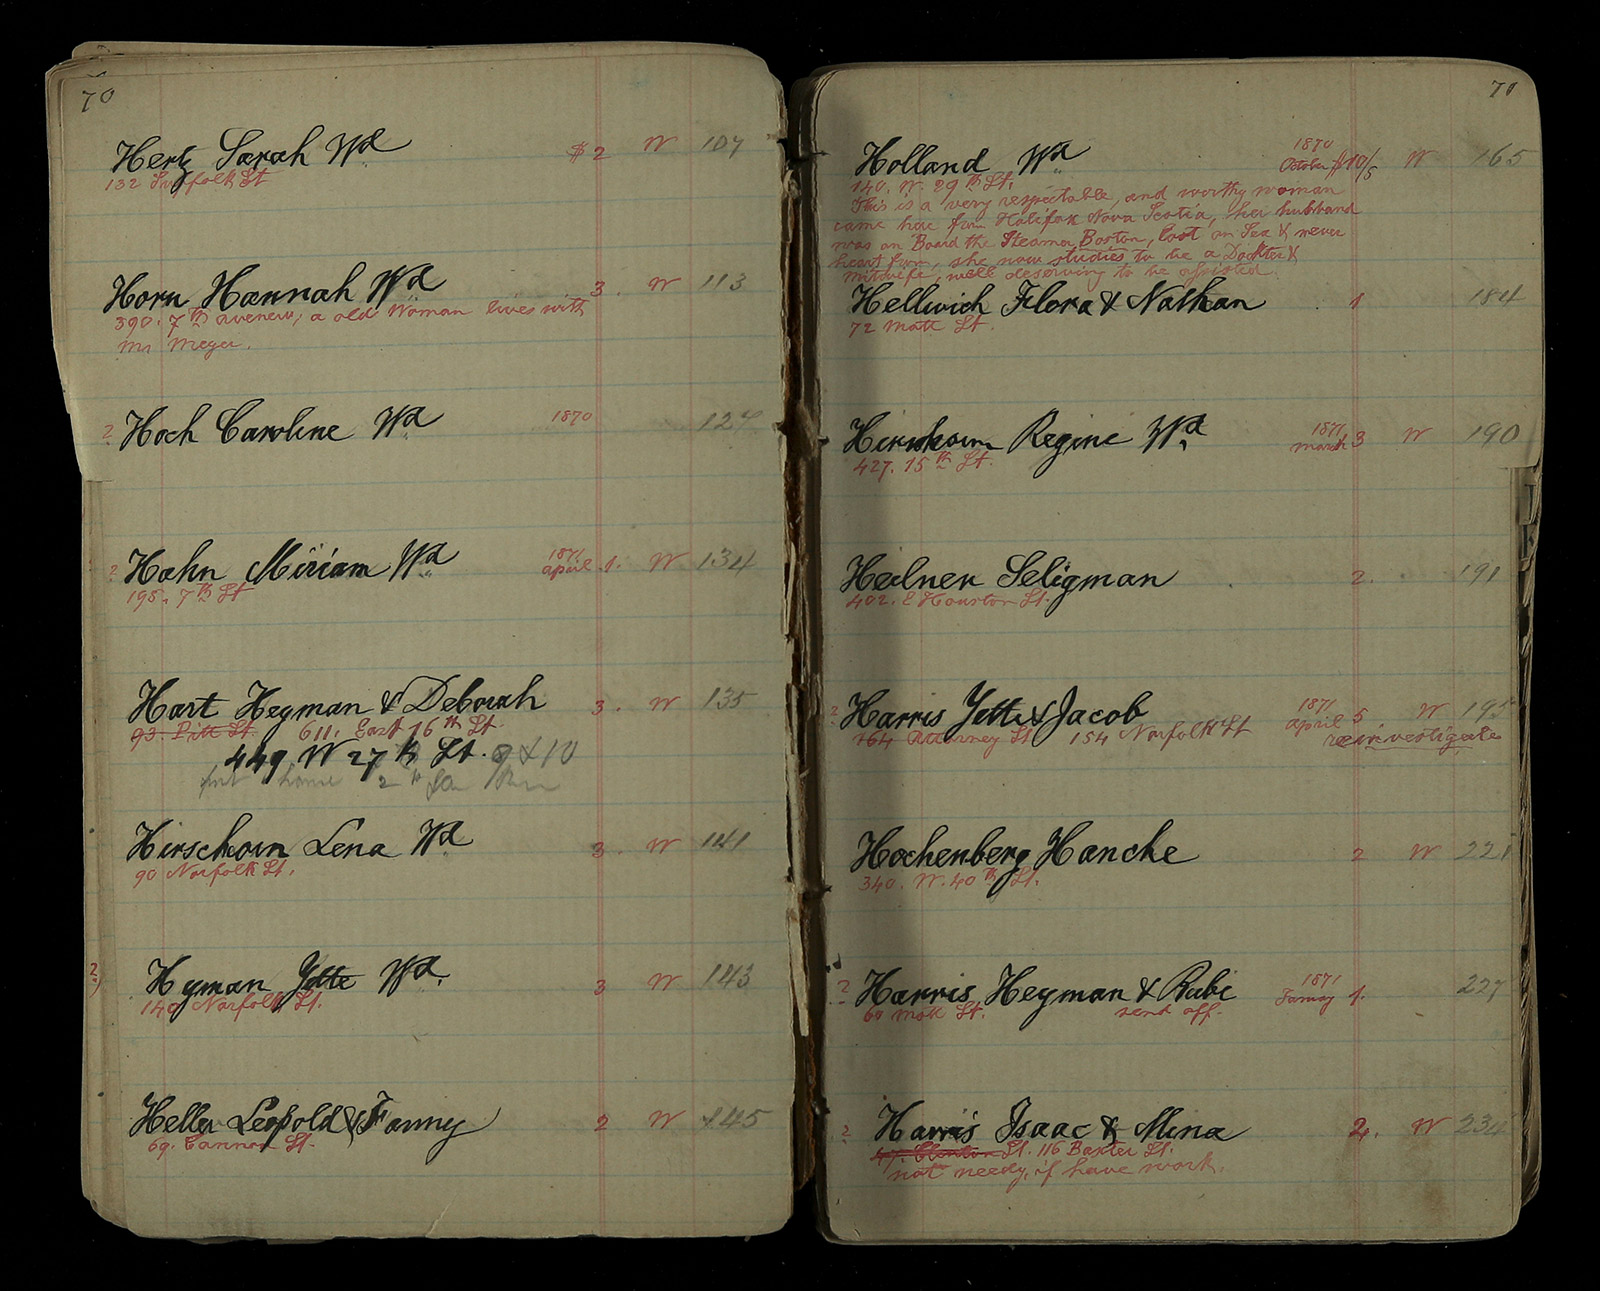 70
Hertz Sarah Wd $2 W 107
132 Suffolk St
Horn Hannah Wd 3. W 113
390. 7th avenew, a old Woman lives with
Mr Meyer.
2 Hoch Caroline Wd 1870 127
1871
2 Hahn Miriam Wd april 1. W 134
195. 7th St
Hart Heyman & Deborah 3. W 135
93. Pitt St. 611. East 16th St.
449 W 27th St. 9 & 10
home
Hirschorn Lena Wd 3. W 141
90 Norfolk St.
2) Hyman Yette Wd. 3 W 143
140 Norfolk St.
Heller Leopold & Fanny 2 W 145
69. Cannon St.
71
1870
Holland Wd October $10/5 W 165
140. W. 29th St.
This is a very respectable, and worthy woman
came here from Halifax Nova Scotia, her hubband
was on Board the Steamer Boston, lost on Sea & never
heart from, she now studies to be a Dockter &
mitwife, well deserving to be assisted.
Hellwich Flora & Nathan 1 184
72 Mott St.
1871
Hirschorn Regine Wd. march 3 W 190
427. 15th St.
Heilner Seligman 2. 191
402. E Houston St.
1871
2 Harris Yette & Jacob april 5 W 195
164 Attorney St 154 Norfolk St reinvestigate
Hochenberg Hanche 2 W 221
340. W. 40th St.
1871
2 Harris Heyman & Rubi 1. 227
69 Mott St. send off.
2 Harris Isaac & Mina 2. W 234
47. Clinton St. 116 Baxter St.
not needy, if have work.